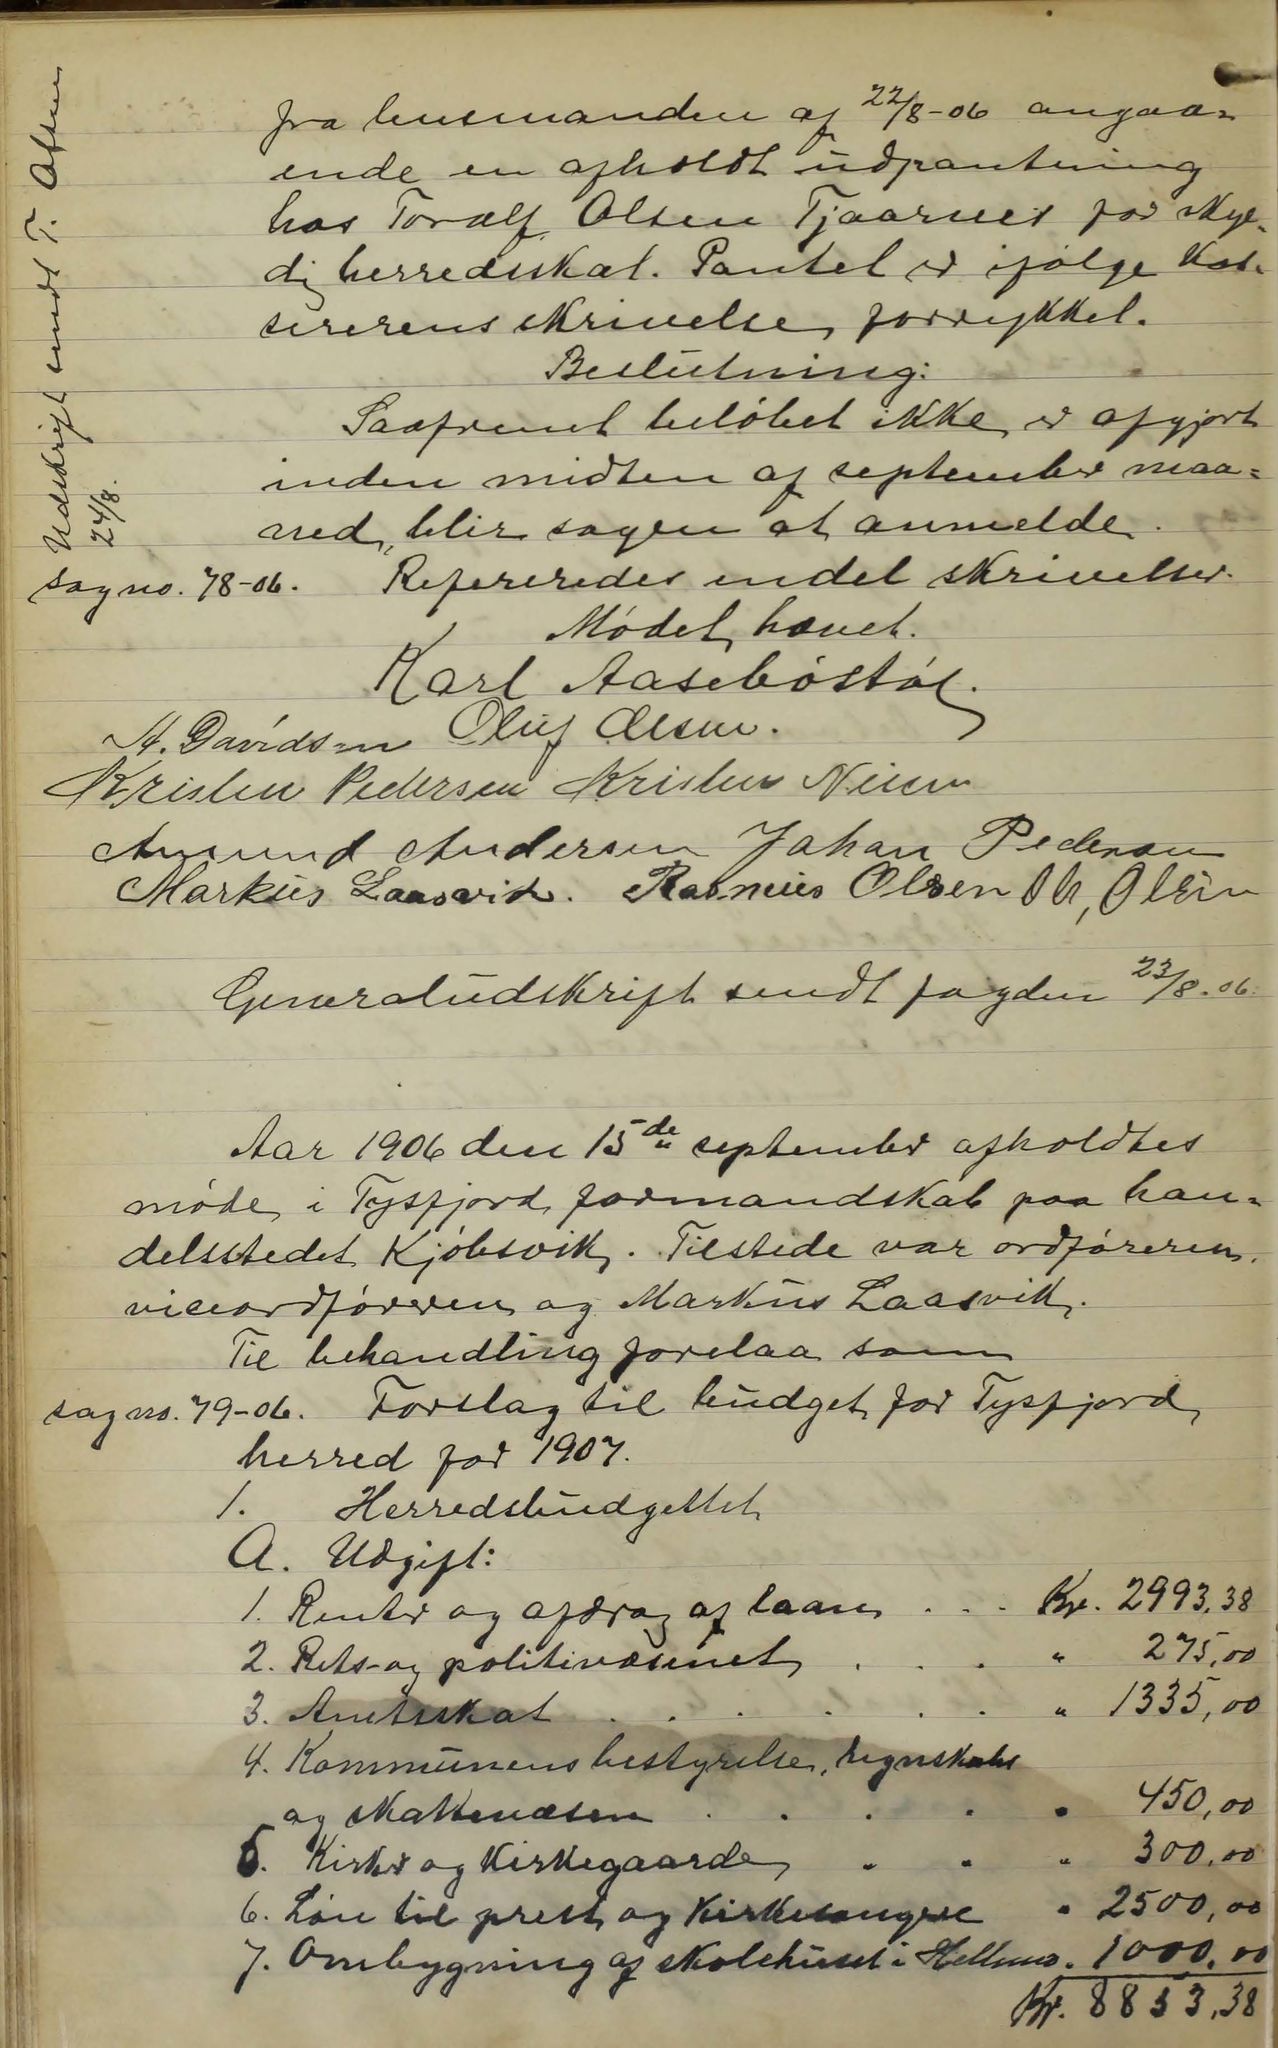 Udskrift sendt T. Olsen
24/8.
fra lensmanden af 22/8-06 angaa=
ende en afholdt udpantning
hos Toralf Olsen Tjaarnes for skyl-
dig herredsskat. Pantet er ifølge kas-
sererens skrivelse forrykket.
Beslutning:
Saafremt beløbet ikke er afgjort
inden midten af september maa=
ned, blir sagen at anmelde.
sag no. 78-06. Refereredes endel skrivelser.
Mødet hævet.
Karl Aasebøstøl.
A. Davidsen Oluf Olsen.
Kristen Pedersen Kristen
Amund Andersen Johan Pedersen
Markus Laasvik. Rasmus Olsen Ol, Olsen
Generaludskrift sendt fogden 23/8-06.
Aar 1906 den 15de september afholdtes
møde i Tysfjord formandskab paa han=
delsstedet Kjøbsvik. Tilstede var ordføreren,
viceordføreren og Markus Laasvik.
Til behandling forelaa som
sag no. 79-06. Forslag til budget for Tysfjord
herred for 1907.
1. Herredsbudgettet
A. Udgift:
1. Renter og afdrag af laan . . . Kr. 2993,38
2. Rets- og politivæsenet . . . " 275,00
3. Amtsskat . . . . . . " 1335,00
4. Kommunens bestyrelse, regnskabs
og skattevæsen . . . . " 450,00
5. Kirker og kirkegaarde . . " 300,00
6. Løn til prest og kirkesangere " 2500,00
7. Ombygning af skolehuset i Hellmo. 1000,00
Kr. 8853,38